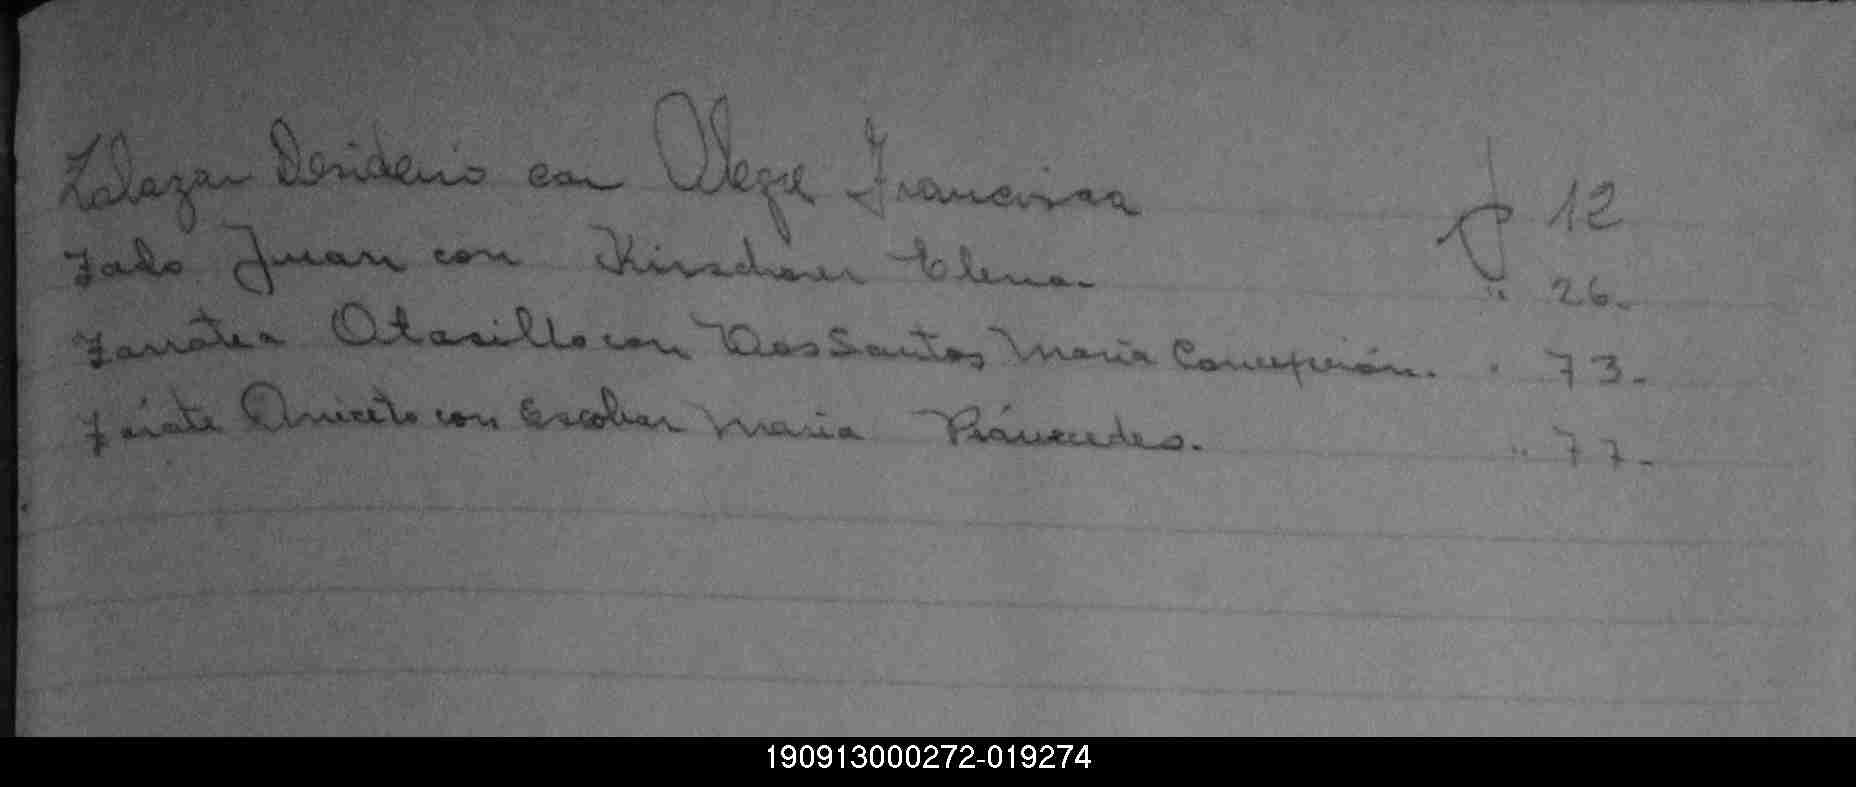 Zalazar Desiderio con Alegre Francisca F 12
Zado Juan con Kirschner Elena. " 26.
Zarratea Otasillo con Dos Santos Maria Concepción. " 73.
Zárate Aniceto con Escobar Maria " 77.
190913000272-019274